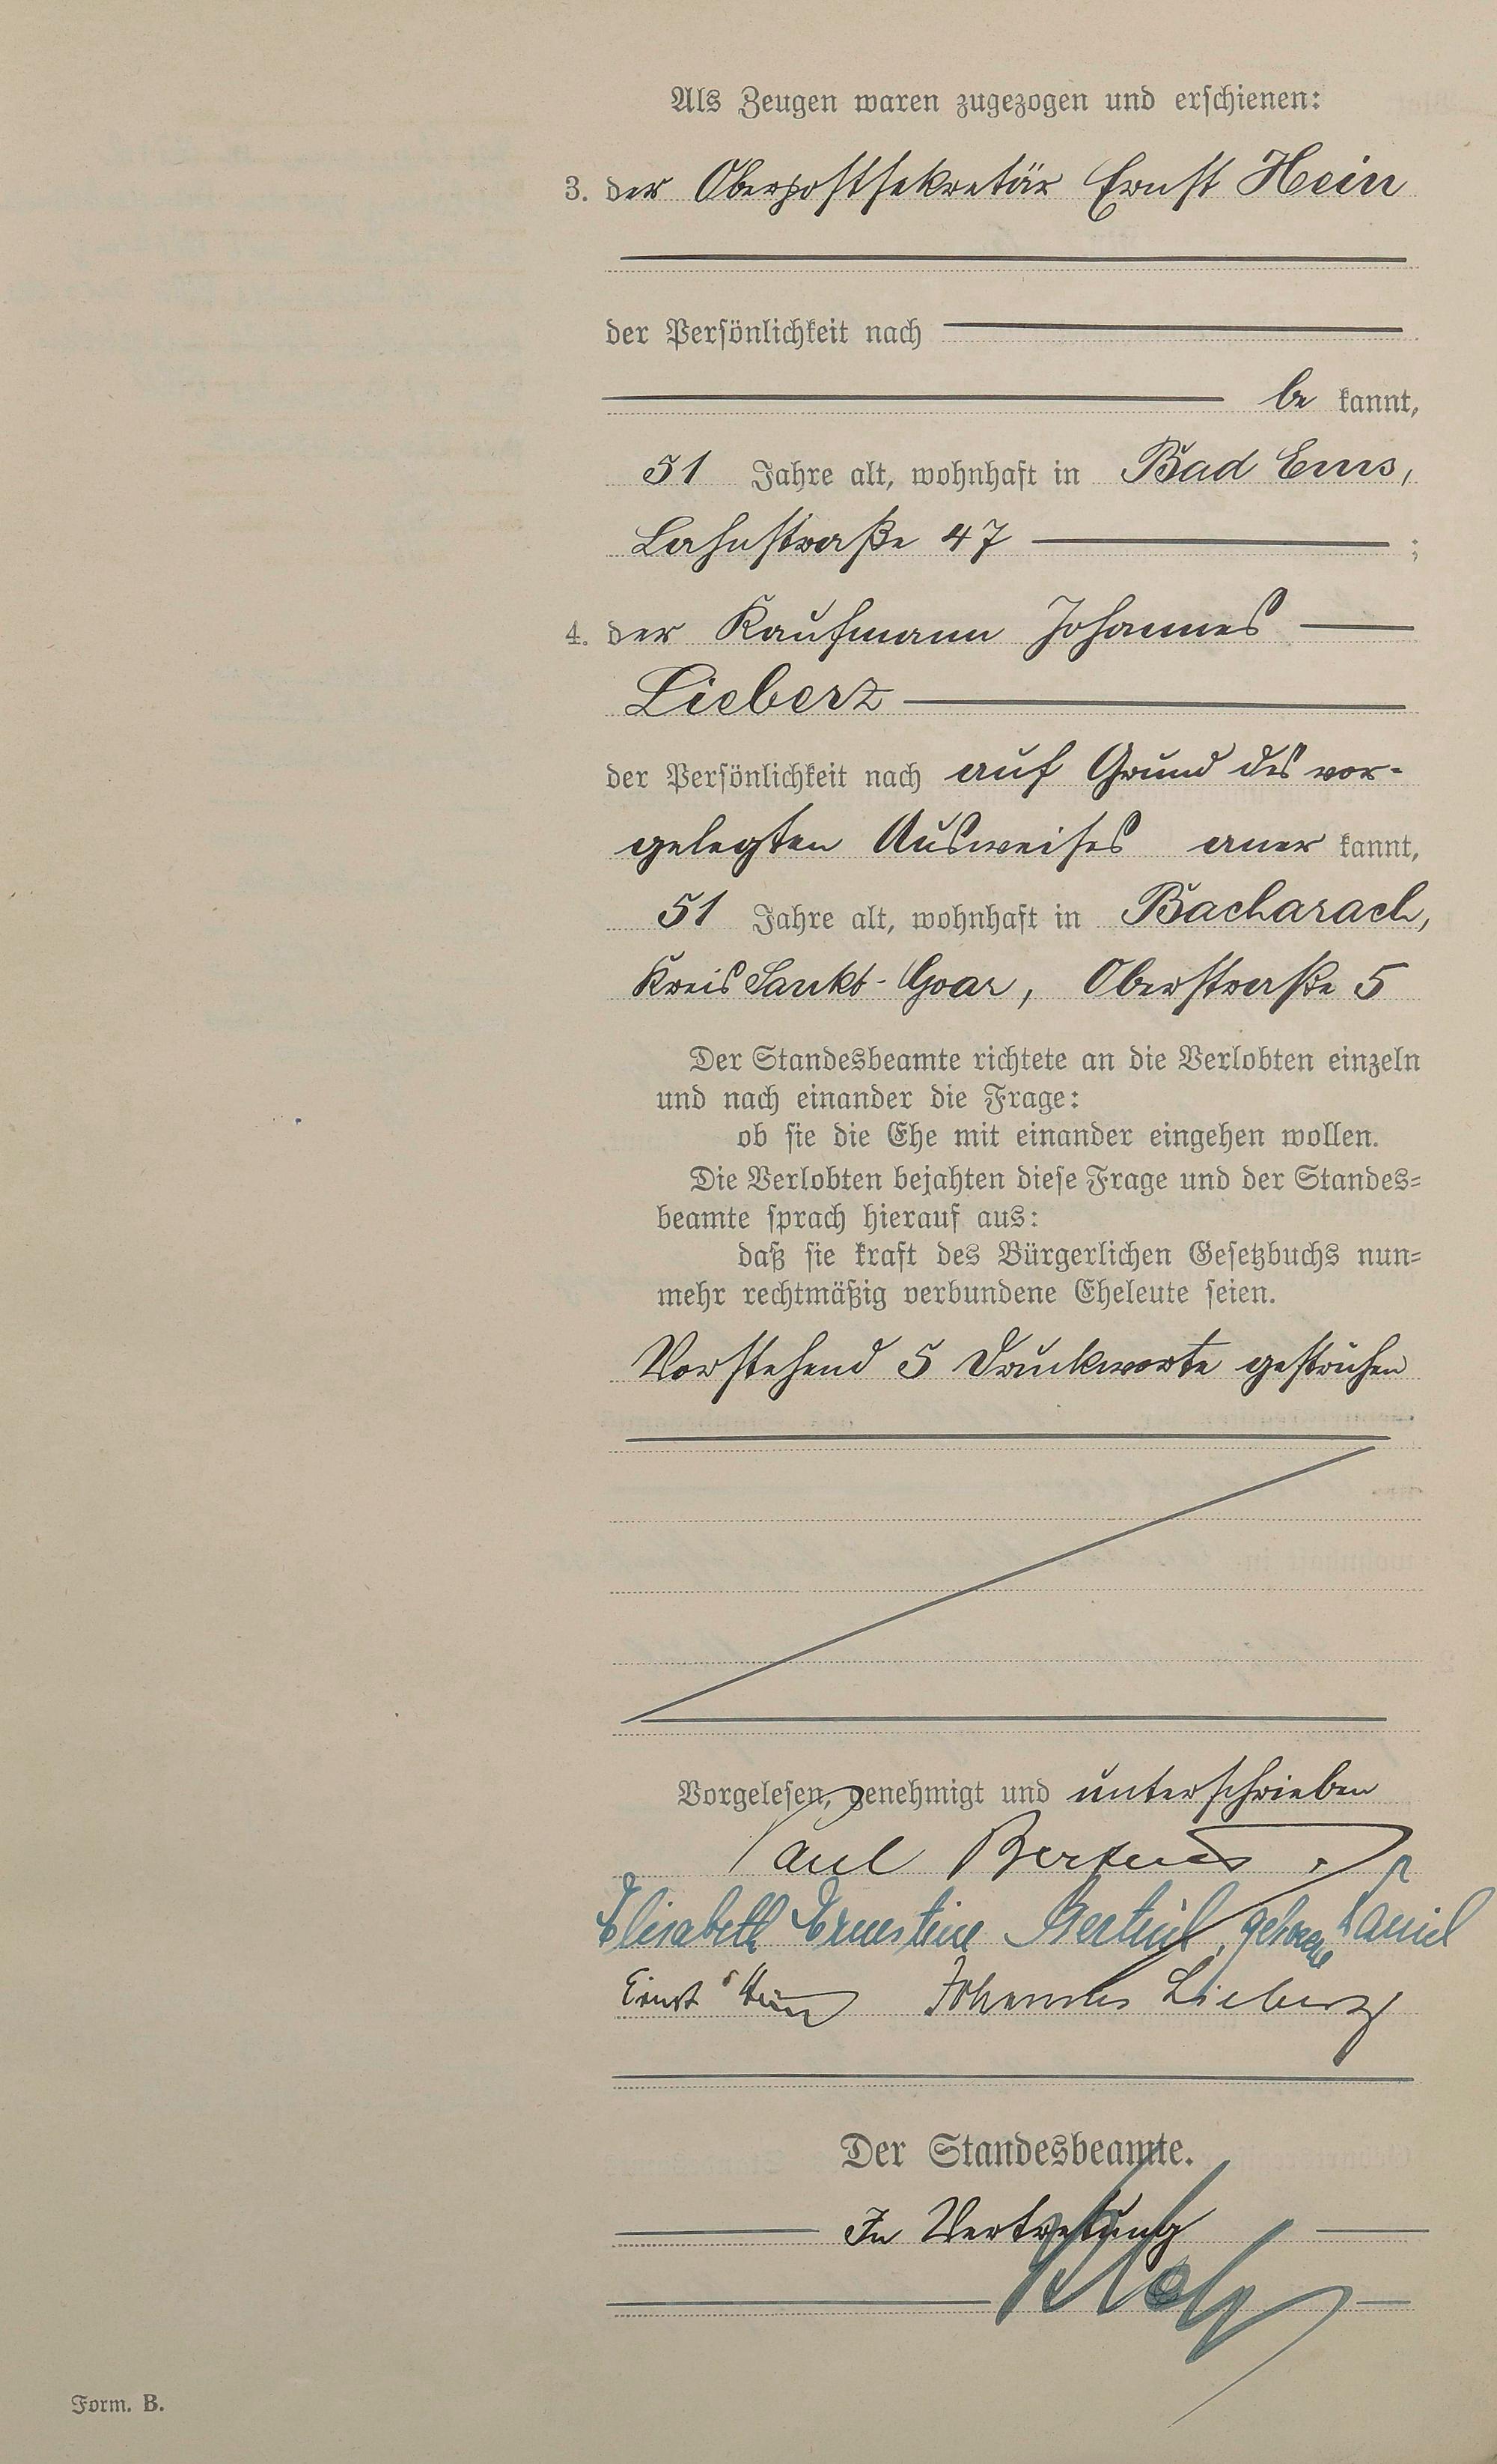 Als Zeugen waren zugezogen und erschienen:
3. der Oberpostsekretär Ernst Hein
der Persönlichkeit nach
be kannt,
51 Jahre alt, wohnhaft in Bad Ems,
Lahnstraße 47 ;
4. der Kaufmann Johannes
Lieberz
der Persönlichkeit nach auf Grund des vor-
gelegten Ausweises aner kannt,
51 Jahre alt, wohnhaft in Bacharach,
Kreis Sankt-Goar, Oberstraße 5
Der Standesbeamte richtete an die Verlobten einzeln
und nach einander die Frage:
ob sie die Ehe mit einander eingehen wollen.
Die Verlobten bejahten diese Frage und der Standes-
beamte sprach hierauf aus:
daß sie kraft des Bürgerlichen Gesetzbuchs nun-
mehr rechtmäßig verbundene Eheleute seien.
Vorstehend 5 Druckworte gestrichen
Vorgelesen, genehmigt und unterschrieben
Paul
Elisabeth Ernestine geborene
Ernst Hein Johannes Lieberz
Der Standesbeamte.
In Vertretung
Form. B.